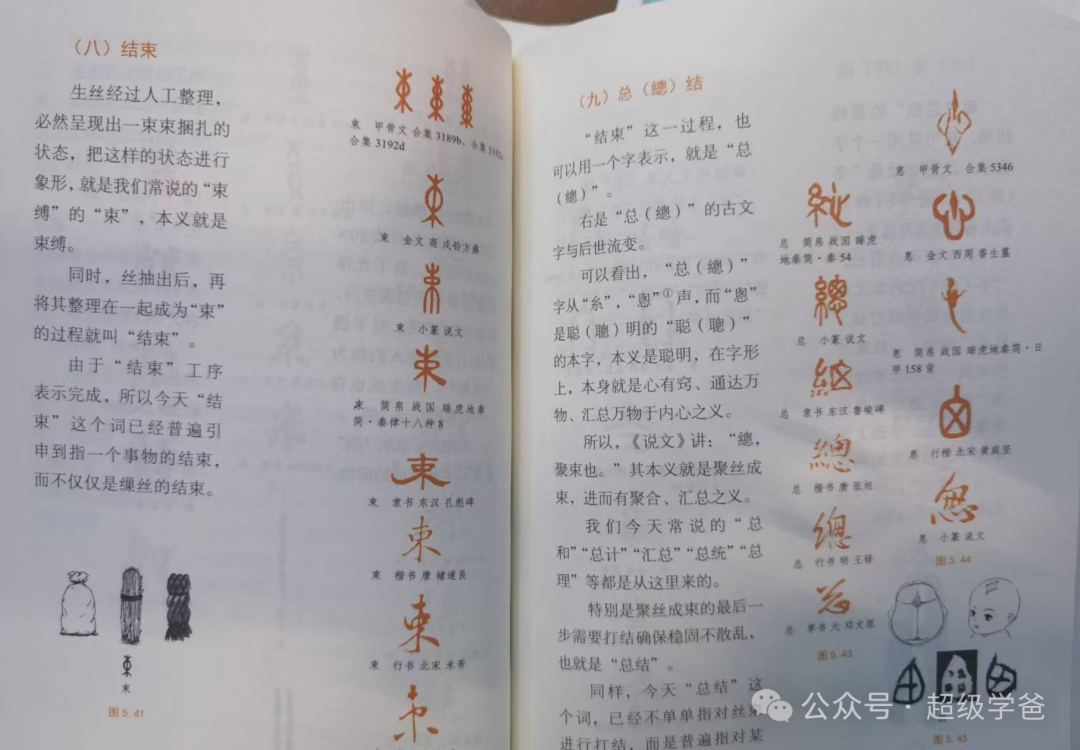 （八）结束
生丝经过人工整理，
必然呈现出一束束捆扎的
状态，把这样的状态进行
象形，就是我们常说的“束
缚”的“束”，本义就是
束缚。
同时，丝抽出后，再
将其整理在一起成为“束”
的过程就叫“结束”。
由于“结束”工序
表示完成，所以今天“结
束”这个词已经普遍引
申到指一个事物的结束，
而不仅仅是缫丝的结束。
束
图5.41
束 甲骨文 合集3189b、合集3192c、
合集3192d
束 金文 商 戍铃方彝
束 小篆 说文
束 简帛 战国 睡虎地秦
简·秦律十八种8
束
束 隶书 东汉 孔彪碑
束
束 楷书 唐 褚遂良
束
束 行书 北宋 米芾
束
（九）总（總）结
“结束”这一过程，也
可以用一个字表示，就是“总
（總）”。
右是“总（總）”的古文
字与后世流变。
可以看出，“总（總）”
字从“糸”，“悤”①声，而“悤”
是聪（聰）明的“聪（聰）”
的本字，本义是聪明，在字形
上，本身就是心有窍、通达万
物、汇总万物于内心之义。
所以，《说文》讲：“總，
聚束也。”其本义就是聚丝成
束，进而有聚合、汇总之义。
我们今天常说的“总
和”“总计”“汇总”“总统”“总
理”等都是从这里来的。
特别是聚丝成束的最后一
步需要打结确保稳固不散乱，
也就是“总结”。
同样，今天“总结”这
个词，已经不单单指对丝束
进行打结，而是普遍指对某
总 简帛 战国 睡虎
地秦简·秦54
总 小篆 说文
总 隶书 东汉 鲁峻碑
總
总 楷书 唐 张旭
總
总 行书 明 王铎
总 草书 元 邓文原
图5.43
悤 甲骨文 合集5346
悤 金文 西周 番生簋
悤 简帛 战国 睡虎地秦简·日
甲158背
悤 行楷 北宋 黄庭坚
悤 小篆 说文
图5.44
图5.45
公众号·超级学爸